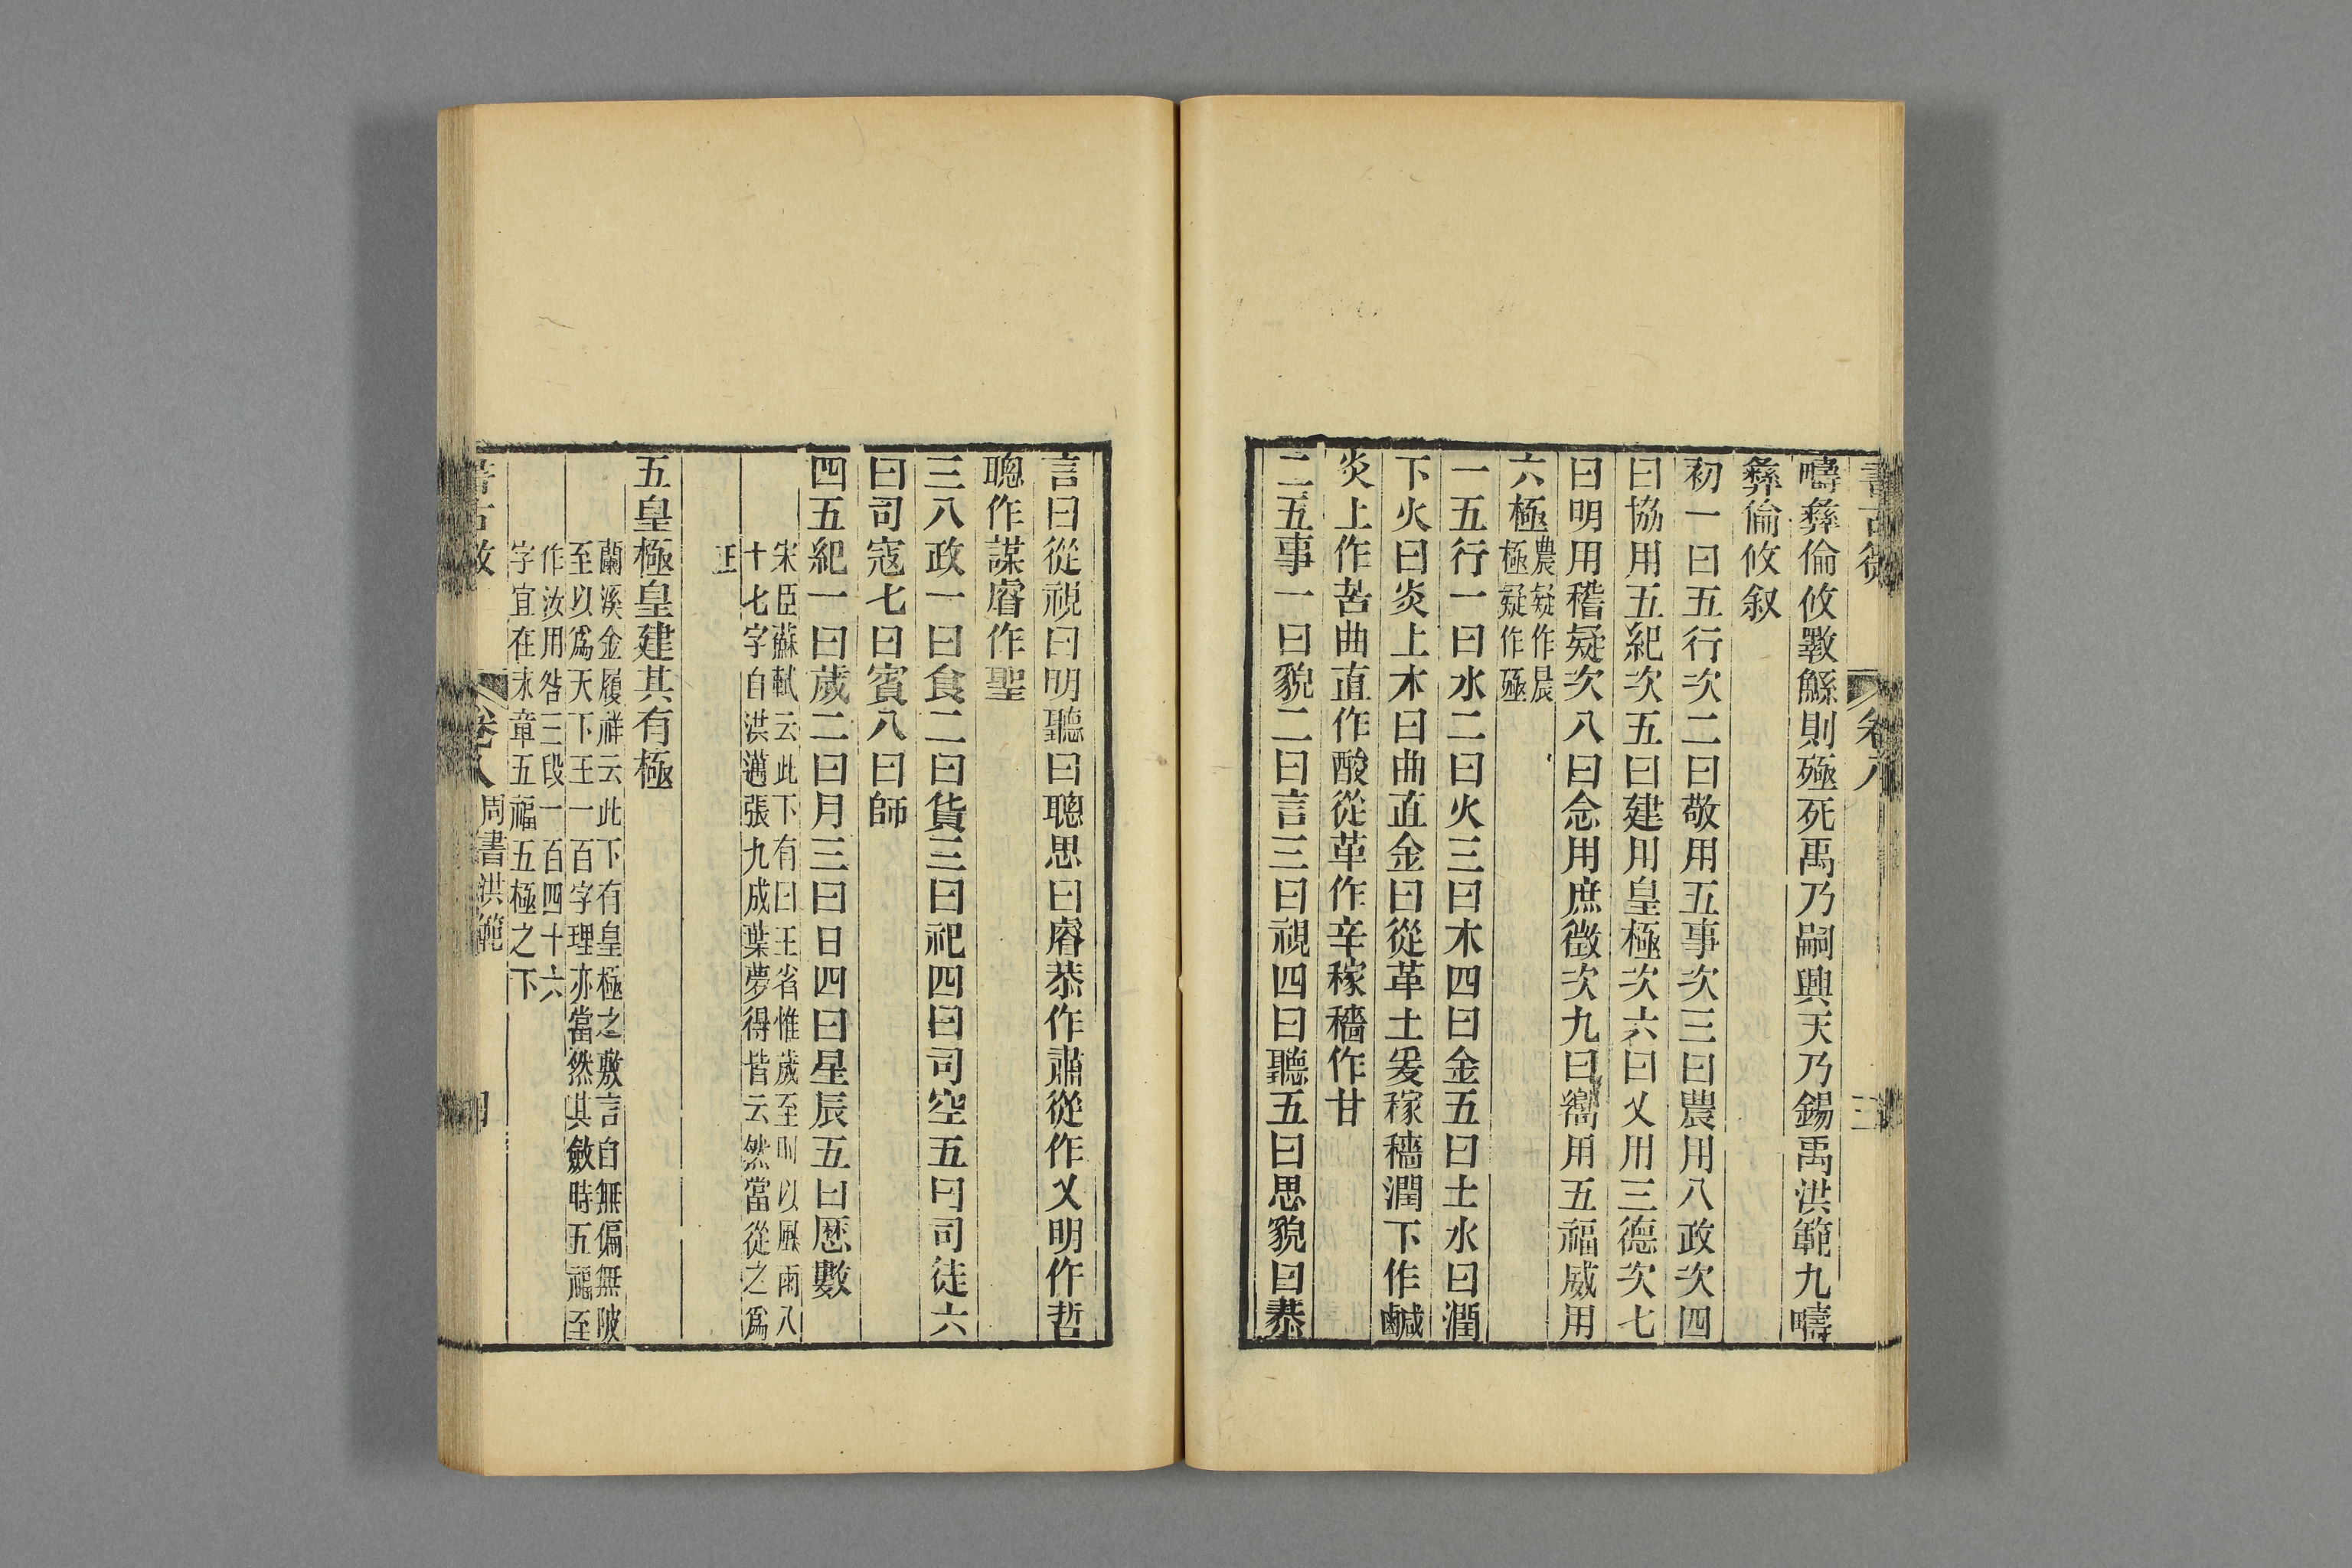 疇彝倫攸斁鯀則殛死禹乃嗣興天乃錫禹洪範九疇
彝倫攸叙
初一曰五行次二曰敬用五事次三曰農用八政次四
曰協用五紀次五曰建用皇極次六曰乂用三德次七
曰明用稽疑次八曰念用庶徵次九曰嚮用五福威用
六極農疑作晨
極疑作殛
一五行一曰水二曰火三曰木四曰金五曰土水曰潤
下火曰炎上木曰曲直金曰從革土爰稼穡潤下作鹹
炎上作苦曲直作酸從革作辛稼穡作甘
二五事一曰貌二曰言三曰視四曰聽五曰思貌曰恭
言曰從視曰明聽曰聰思曰睿恭作肅從作乂明作哲
聰作謀睿作聖
三八政一曰食二曰貨三曰祀四曰司空五曰司徒六
曰司寇七曰賓八曰師
四五紀一曰歲二曰月三曰日四曰星辰五曰厯數
宋臣蘇軾云此下有曰王省惟歲至則以風雨八
十七字自洪邁張九成葉夢得皆云然當從之爲
正
五皇極皇建其有極
蘭溪金履祥云此下有皇極之敷言自無偏無陂
至以爲天下王一百字理亦當然其斂時五福至
作汝用咎三段一百四十六
字宜在末章五福五極之下
卷八
周書洪範